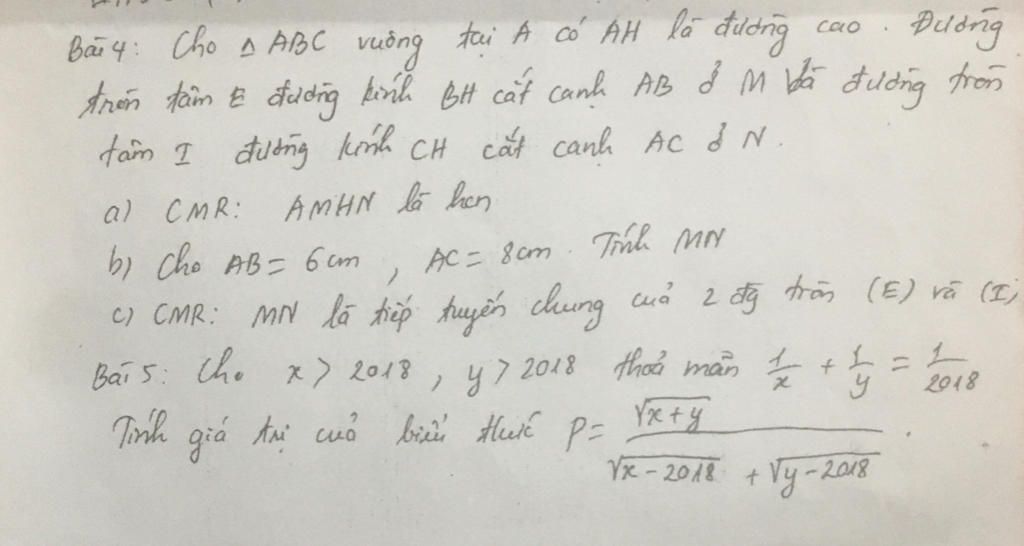 Bài 4: Cho △ ABC vuông tại A có AH là đường cao. Đường
tròn tâm E đường kính BH cắt cạnh AB ở M và đường tròn
tâm I đường kính CH cắt cạnh AC ở N.
a) CMR: AMHN là hcn
b) Cho AB = 6cm, AC = 8cm. Tính MN
c) CMR: MN là tiếp tuyến chung cuả 2 đg tròn (E) và (I)
Bài 5: Cho x > 2018, y > 2018 thoả mãn 1/x + 1/y = 1/2018
Tính giá trị cuả biểu thức P = √(x+y) / (√(x-2018) + √(y-2018)).